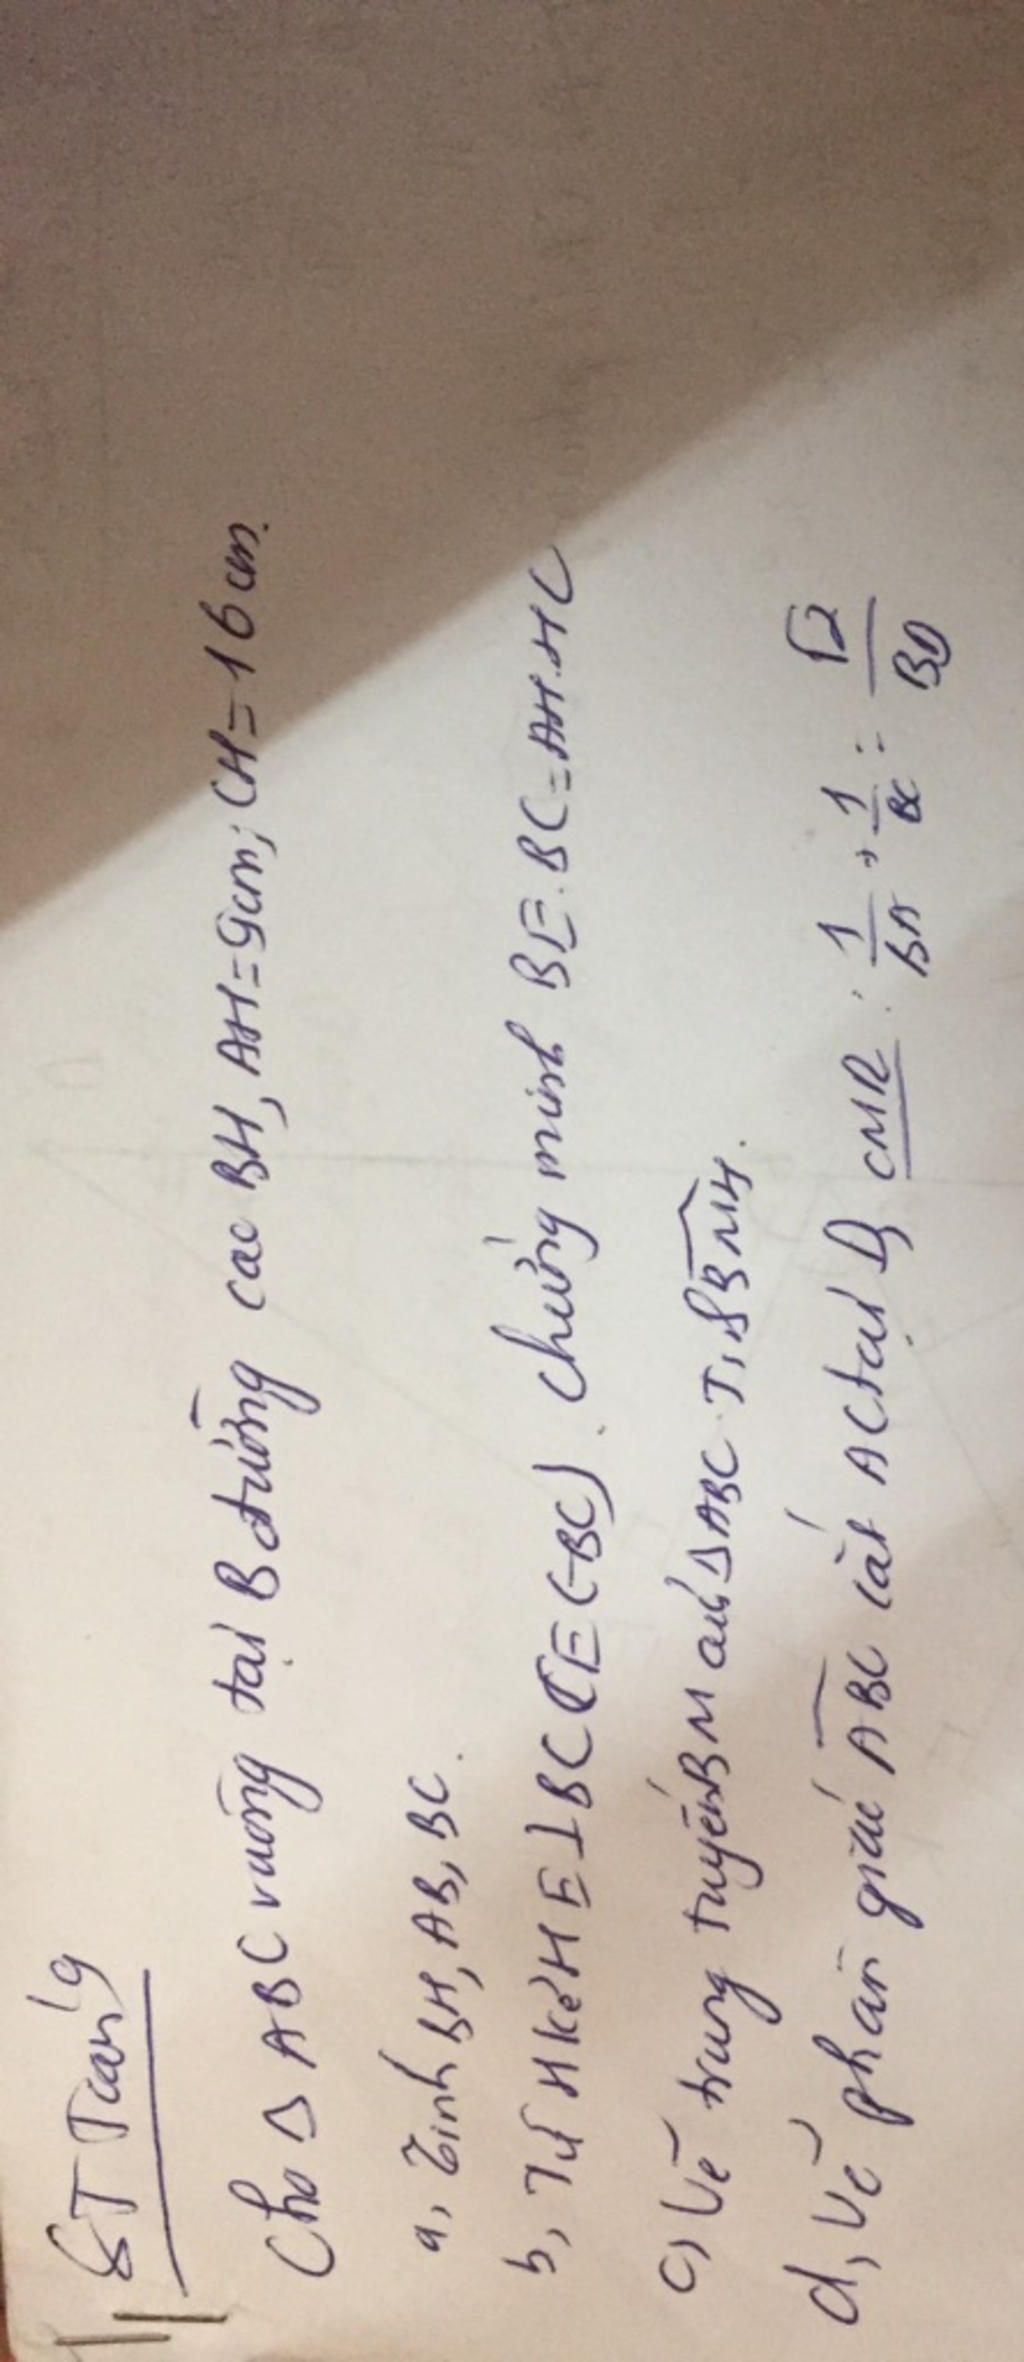 BT Toán 9
Cho Δ ABC vuông tại B đường cao BH, AH = 9cm; CH = 16cm.
a, Tính BH, AB, BC.
b, Từ H kẻ HE ⊥ BC (E ∈ BC). Chứng minh BE.BC = AH.HC
c, Vẽ trung tuyến BM của Δ ABC. Tính BMH.
d, Vẽ phân giác ABC cắt AC tại D CMR: 1/BA + 1/BC = √2/BD